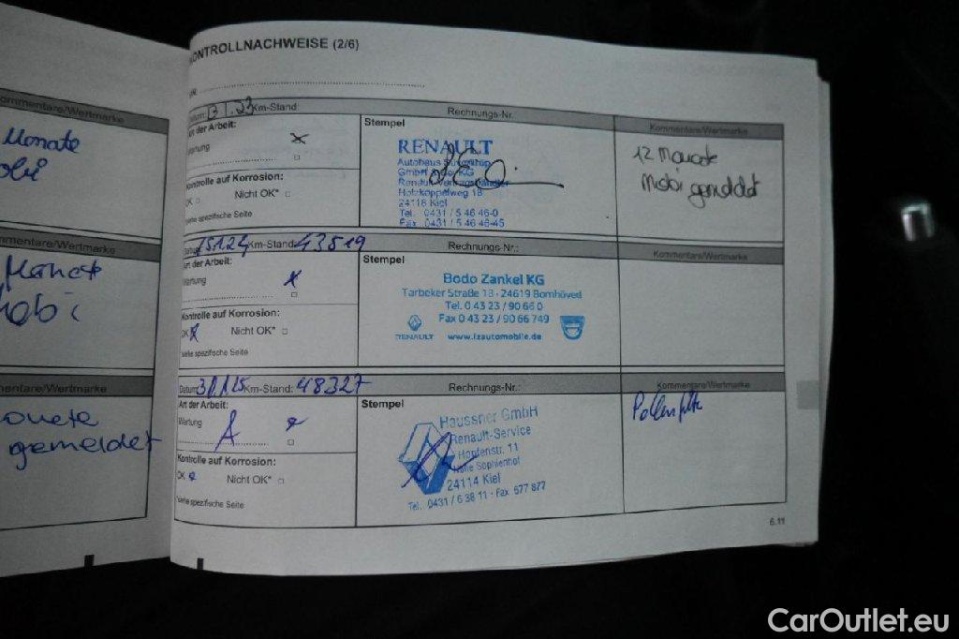 Kommentare/Wertmarke
Monate
Mobi
Kommentare/Wertmarke
Monat
Mobi
Kommentare/Wertmarke
gemeldet
KONTROLLNACHWEISE (2/6)
Datum: Km-Stand: Rechnungs-Nr. Kommentare/Wertmarke
Art der Arbeit:
Wartung
Kontrolle auf Korrosion:
OK Nicht OK*
Siehe spezifische Seite
Stempel
RENAULT
GmbH & Co. KG
Holzkoppelweg 18
24118 Kiel
Tel. 0431 / 5 46 46-0
Fax 0431 / 5 46 46-45
12 Monate
Mobi gemeldet
Datum: Km-Stand: 43519 Rechnungs-Nr.: Kommentare/Wertmarke
Art der Arbeit:
Wartung
Kontrolle auf Korrosion:
OK Nicht OK*
Siehe spezifische Seite
Stempel
Bodo Zankel KG
Tarbeker Straße 13 - 24619 Bornhöved
Tel. 0 43 23 / 90 66 0
Fax 0 43 23 / 90 66 749
RENAULT www.lzautomobile.de
Datum: 30.1.25 Km-Stand: 48327 Rechnungs-Nr.: Kommentare/Wertmarke
Art der Arbeit:
Wartung
Kontrolle auf Korrosion:
OK Nicht OK*
Siehe spezifische Seite
Stempel
Haussner GmbH
Renault-Service
Hopfenstr. 11
24114 Kiel
Tel. 0431 / 6 36 11 - Fax 677 877
6.11
CarOutlet.eu